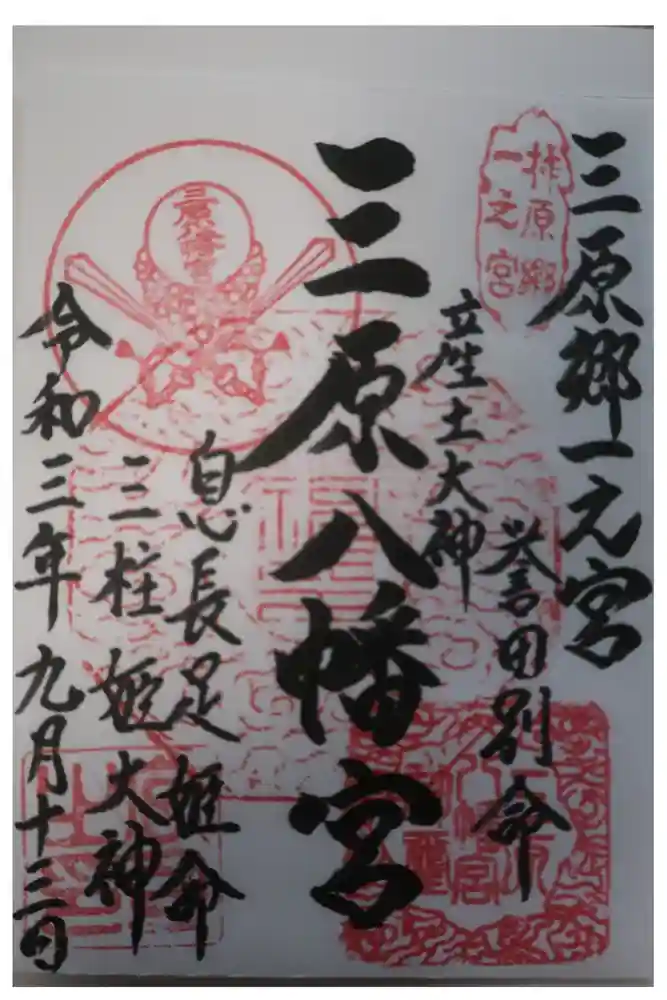 三原郷一之宮
柞原郷
一之宮
誉田別命
産土大神
三原八幡宮
三原八幡宮
息長足姫命
三柱姫大神
令和三年九月十三日